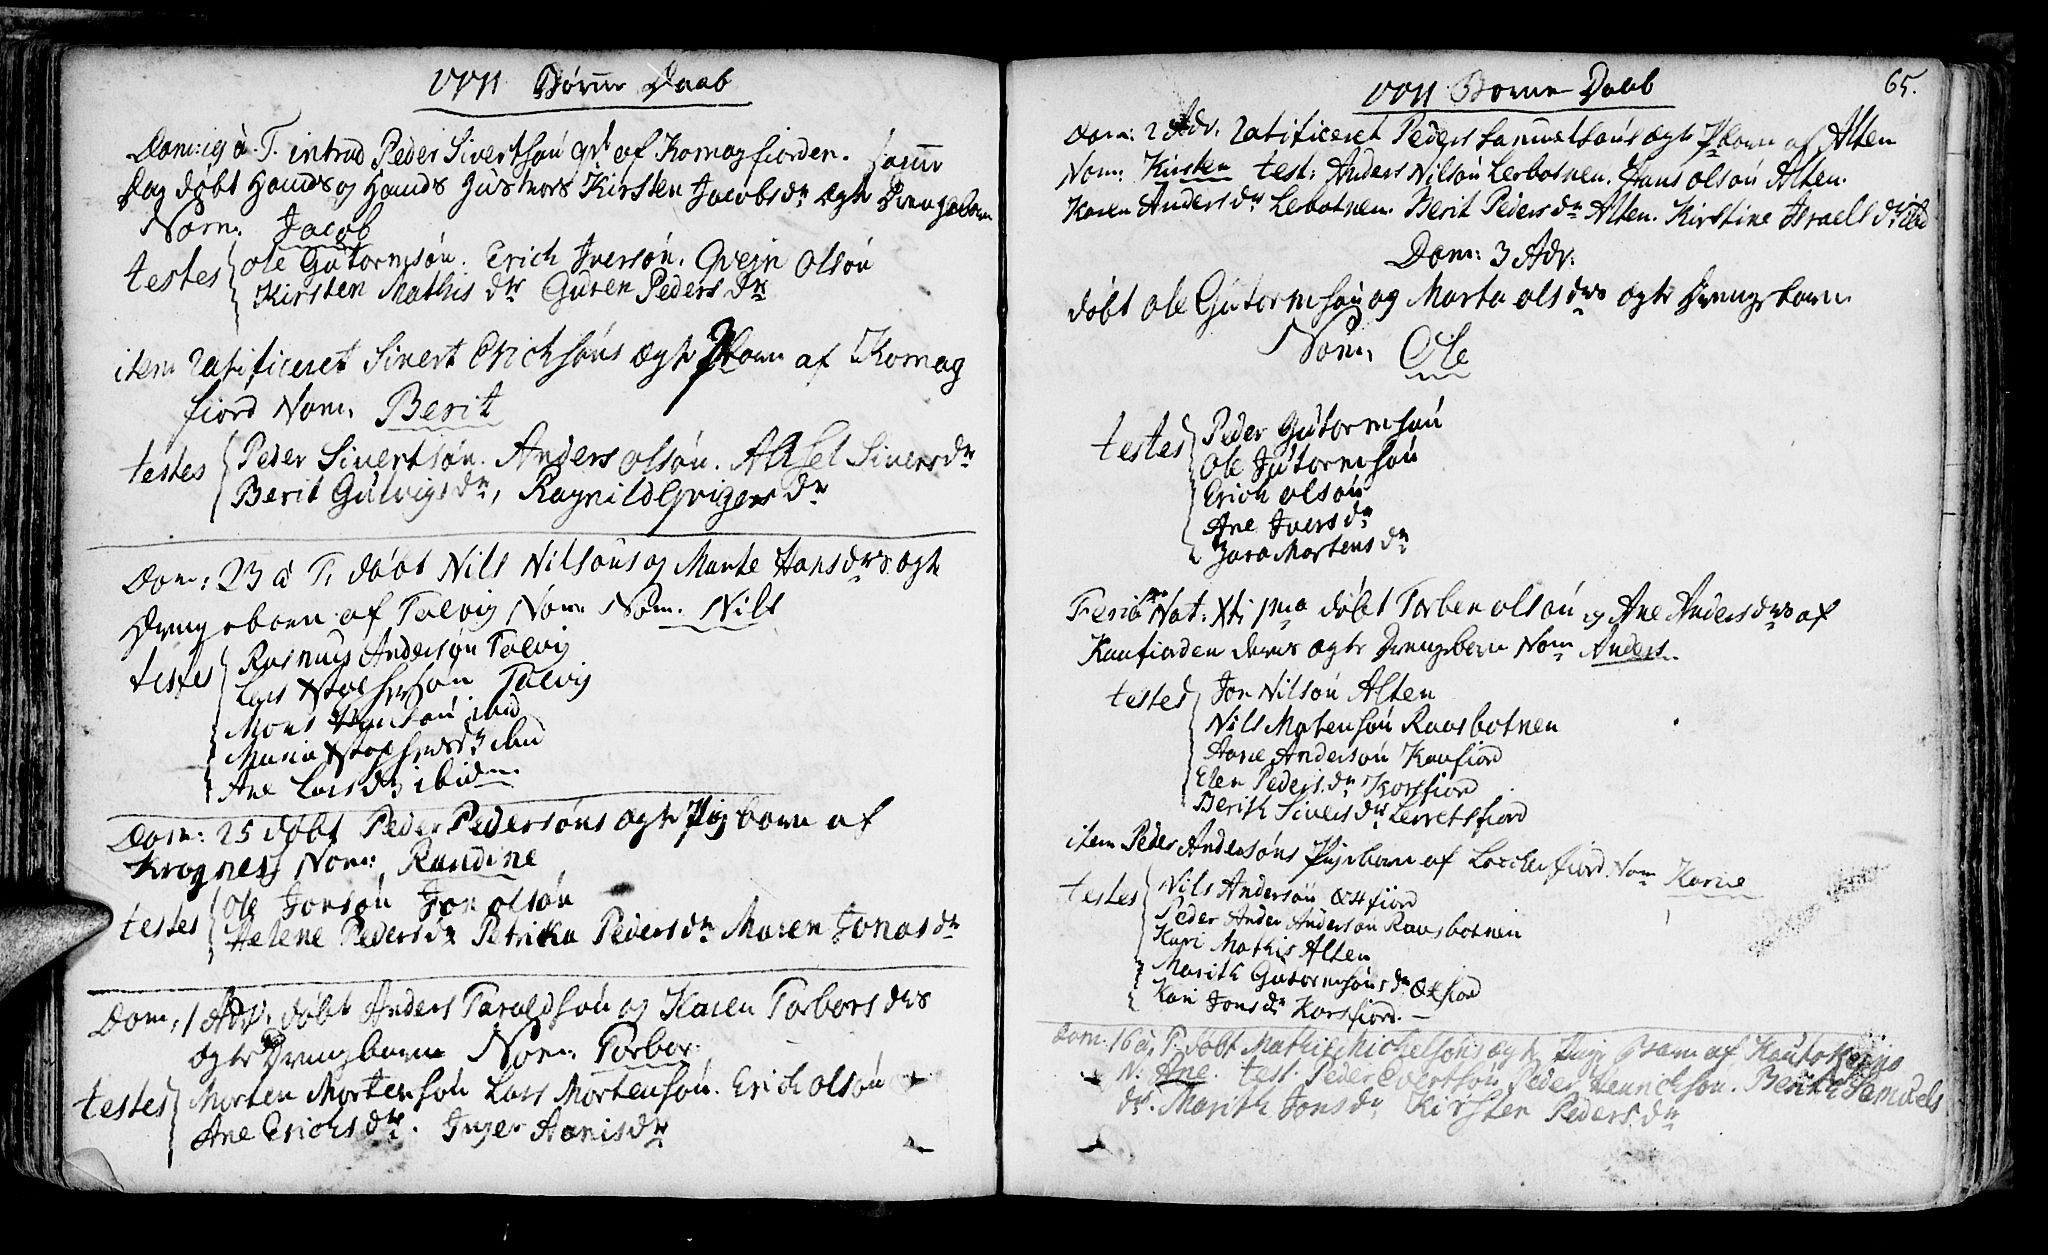 1771 Børne Daab
Dom: 19 à T. introd Peder Sivertsøn qvi af Komagfiorden. Samme
Dag døbt Hands og Hands Hustroes Kirsten Jacobsdr Ægte Drengebarn
Nom: Jacob
testes Ole Gutormsøn. Erich Iversøn. Qvejn Olsøn
Kirsten Mathisdr Guren Pedersdr
item ratificeret Sivert Erichsøns Ægte Pbarn af Komag
fiord Nom. Berit
testes Peder Sivertsøn. Anders Olsøn. Siversdr
Berit Gulvigsdr, Ragnild
Dom: 23 à T. døbt Nils Nilsøns og Marite Hansdrs ægte
Drengebarn af Talvig Nom: Nom. Nils
testes Rasmus Andersøn Talvig
Lars Talvig
Mons ibid
Maria ibid
Ane Larsdr ibidm.
Dom: 25 døbt Peder Pedersøns Ægte Pigbarn af
Krognes Nom: Randine
testes Ole Jonsøn Jon Olsøn
Helene Pedersdr Petrika Pedersdr Maren Jonasdr
Dom: 1 Adv. døbt Anders Taraldsøn og Karen Torborsdrs
ægte Drengbarn Nom: Torbor
testes Morten Mortensøn Lars Mortensøn. Erich Olsøn
Ane Erichsdr. Inger Aanisdr
1771 Børne Daab
65.
Dom: 2 Adv. ratificeret Peder Samuelsøns ægte Pbarn af Alten
Nom: Kirsten test: Anders Nilsøn Lerbotnen. Hans Olsøn Alten.
Karen Andersdr Lerbotnen. Berit Pedersdr Alten. Kirstine Israelsdr ibid
Dom: 3 Adv:
døbt Ole Gutormsøn og Marta Olsdrs ægte Drengebarn
Nom: Ole
testes Peder Gutormsøn
Ole Gutormsøn
Erich Olsøn
Ane Iversdr
Zara Mortensdr
Feria Nat: Xti 1ma døbt Torben Olsøn og Ane Andersdrs af
Kaafiorden deres ægte Drengebarn Nom Anders.
testes Jon Nilsøn Alten
Nils Matensøn Raasbotnen
Aane Andersøn Kaafiord
Elen Pedersdr Korsfiord
Berith Siversdr Lerretsfiord
item Peder Andersøns Pigebarn af Lerretsfiord Nom Karne
testes Nils Andersøn Øxfiord
Peder Ander Andersøn Raasbotnen
Kari Mathis Alten
Marith Gutormsønsdr Øxfiord
Kari Jonsdr Korsfiord.
Dom: 16 à T. døbt Mathis Michelsøns ægte Pige Barn af Kautokejno
N: Ane. test. Peder Evertsøn Peder Henrichsøn. Berith Samuels
dr. Marith Jonsdr Kirsten Pedersdr